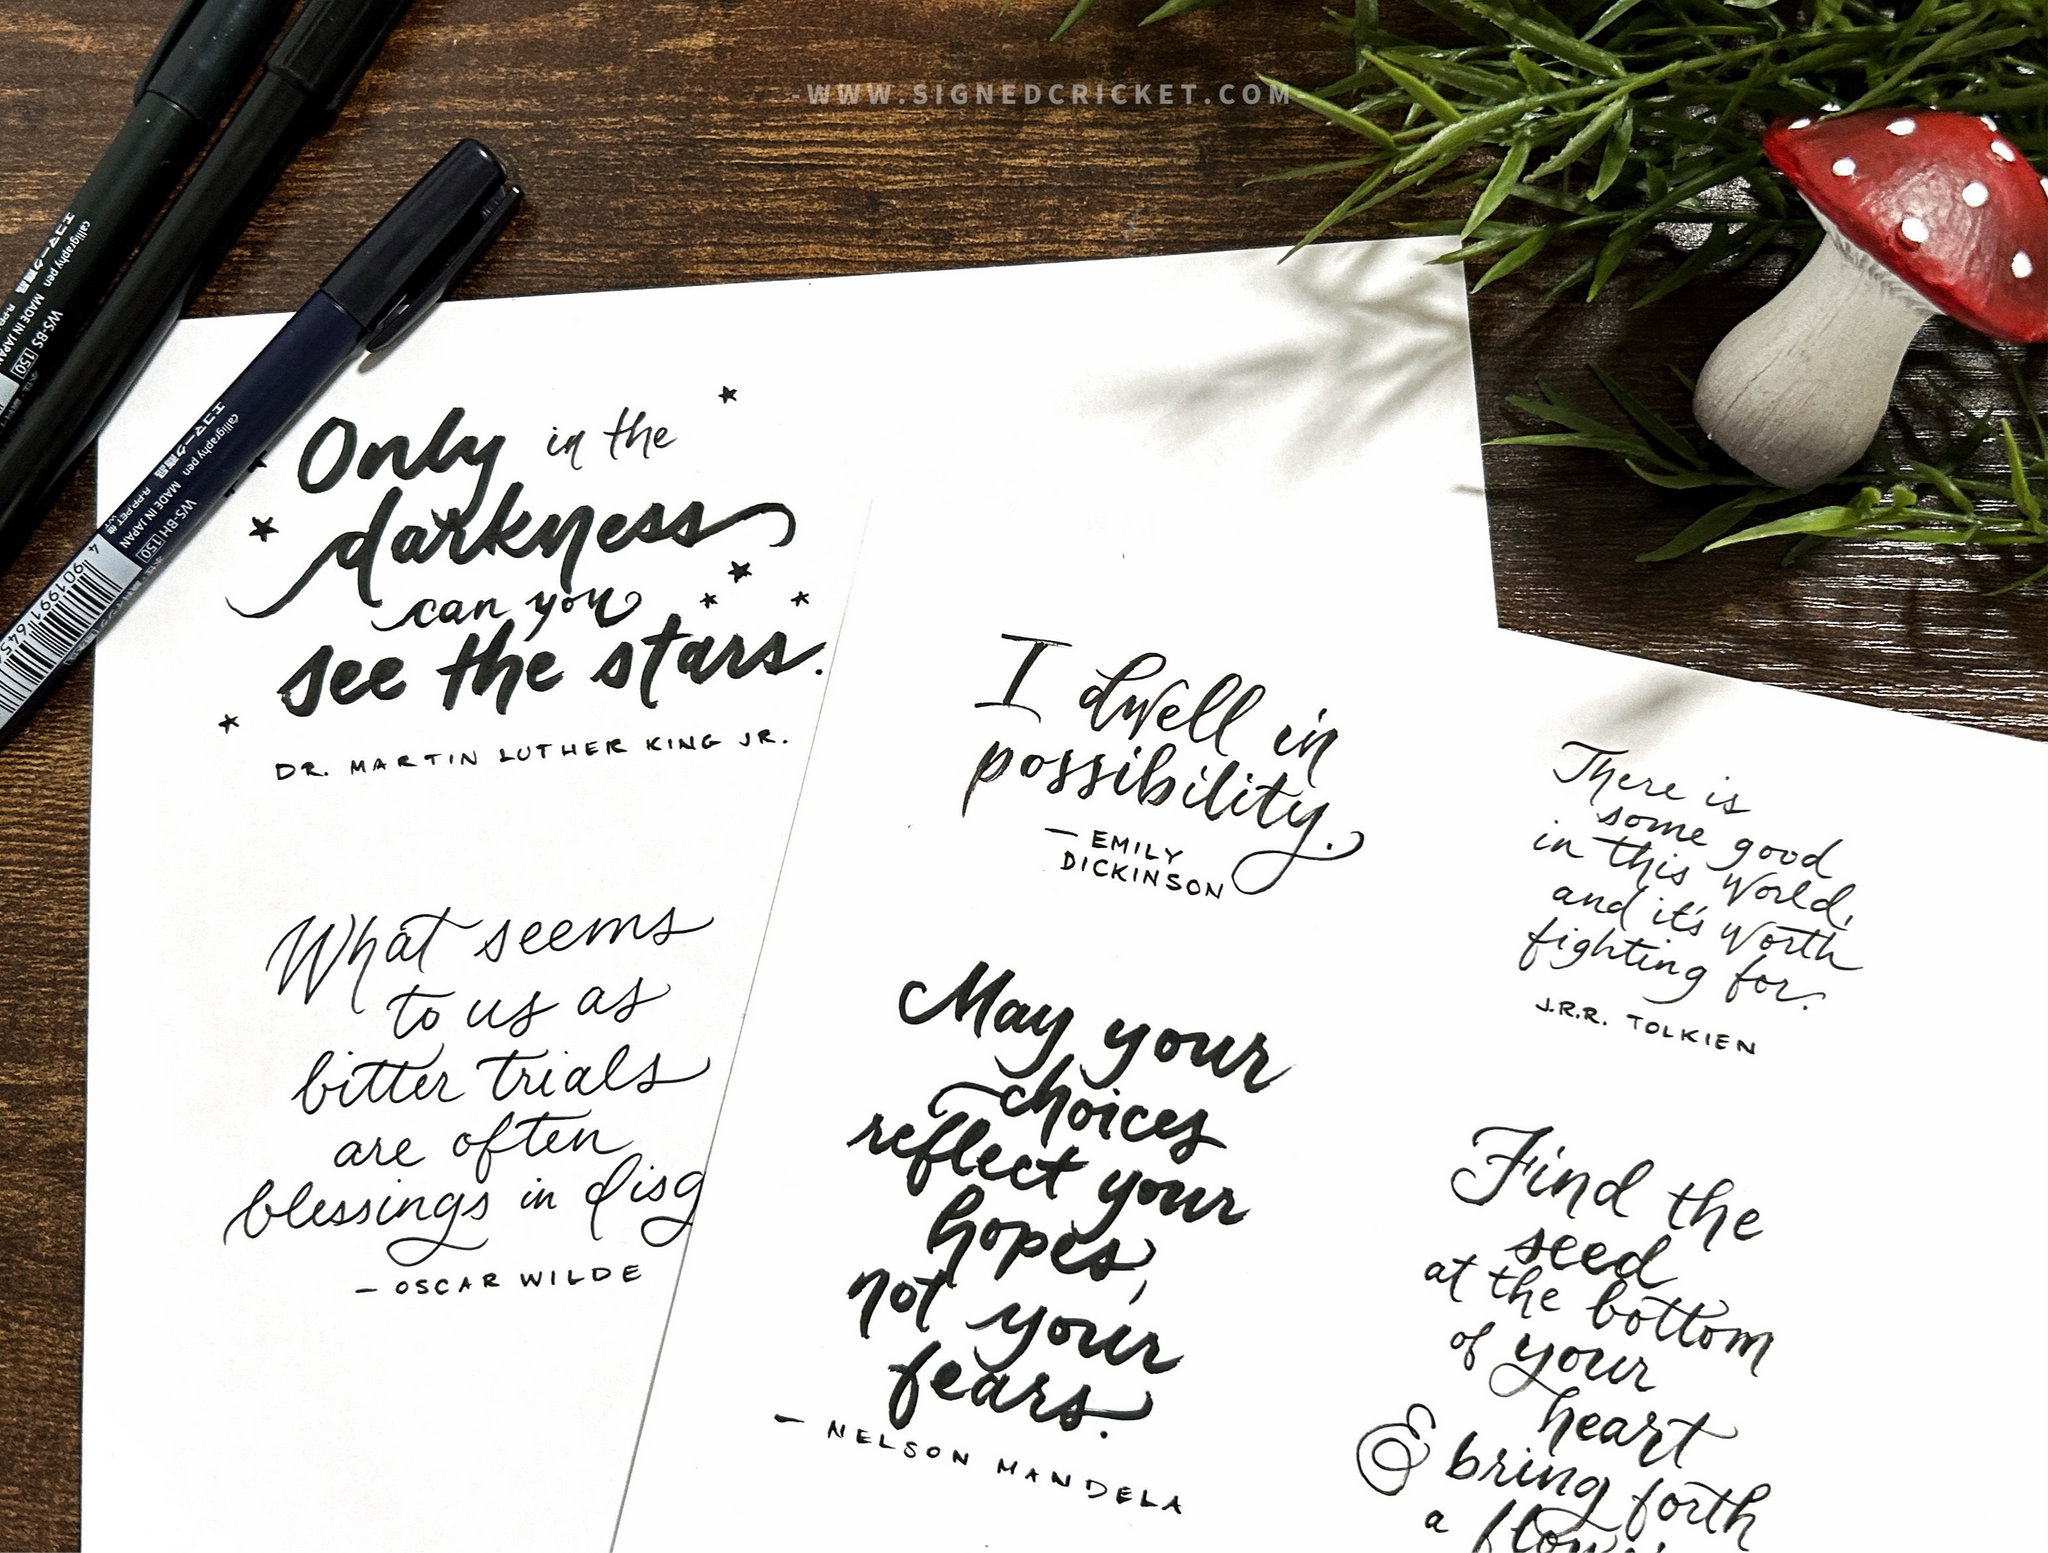 -WWW.SIGNEDCRICKET.COM
calligraphy pen MADE IN JAPAN WS-BS 150
エコマーク商品
calligraphy pen MADE IN JAPAN WS-BH 150
エコマーク商品
R-PP,PET
4 901991 645
Only in the
darkness
can you
see the stars.
DR. MARTIN LUTHER KING JR.
What seems
to us as
bitter trials
are often
blessings in disg
— OSCAR WILDE
I dwell in
possibility.
— EMILY
DICKINSON
May your
choices
reflect your
hopes,
not your
fears.
— NELSON MANDELA
There is
some good
in this world,
and it's worth
fighting for.
J.R.R. TOLKIEN
Find the
seed
at the bottom
of your
heart
& bring forth
a